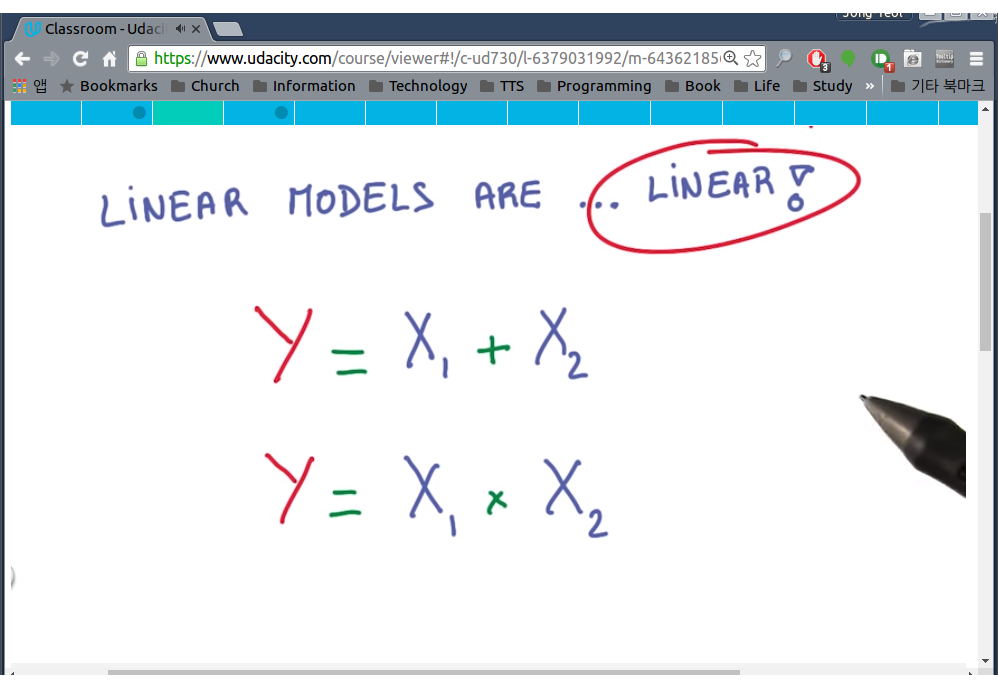 Jong Yeol
Classroom - Udaci
https://www.udacity.com/course/viewer#!/c-ud730/l-6379031992/m-64362185
3
1
앱 Bookmarks Church Information Technology TTS Programming Book Life Study » 기타 북마크
LINEAR MODELS ARE ... LINEAR!
Y = X1 + X2
Y = X1 × X2